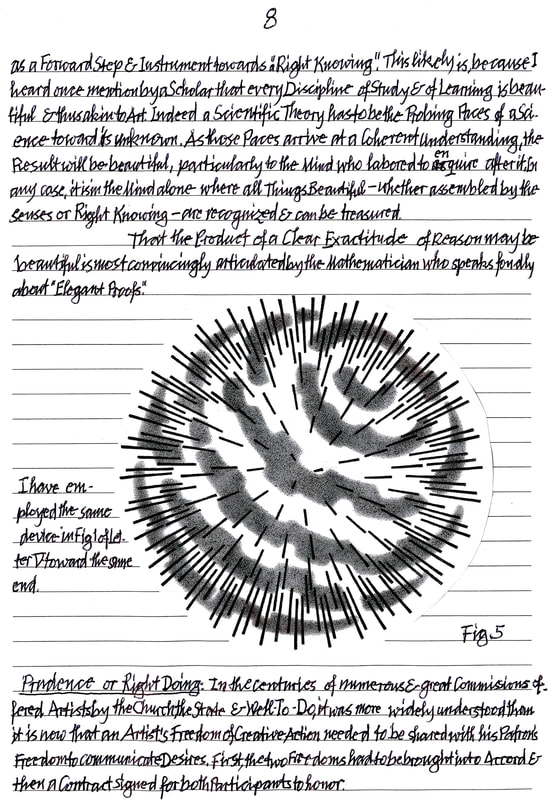 8
as a Forward Step & Instrument towards "Right Knowing." This likely is, because I
heard once mention by a Scholar that every Discipline of Study & of Learning is beau-
tiful & thus akin to Art. Indeed a Scientific Theory has to be the Probing Paces of a Sci-
ence toward its unknown. As those Paces arrive at a Coherent Understanding, the
Result will be beautiful, particularly to the Mind who labored to enquire after it. In
any case, it is in the Mind alone where all Things Beautiful – whether assembled by the
senses or Right Knowing – are recognized & can be treasured.
That the Product of a Clear Exactitude of Reason may be
beautiful is most convincingly articulated by the Mathematician who speaks fondly
about "Elegant Proofs."
I have em-
ployed the same
device in Fig 1 of Let-
ter V toward the same
end.
Fig. 5
Prudence or Right Doing: In the centuries of numerous & great Commissions of-
fered Artists by the Church, the State & Well-To-Do, it was more widely understood than
it is now that an Artist's Freedom of Creative Action needed to be shared with his Patron's
Freedom to communicate Desires. First, the two Freedoms had to be brought into Accord &
then a Contract signed for both Participants to honor.